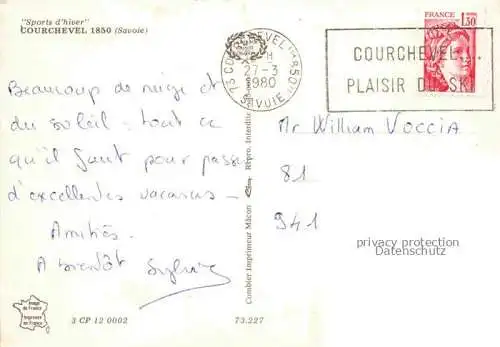 "Sports d'hiver"
COURCHEVEL 1850 (Savoie)
Beaucoup de neige et
du soleil : tout ce
qu'il faut pour passer
d'excellentes vacances -
Amitiés.
A bientôt Sylvie
Image de France
Imprimée en France
3 CP 12 0002
73.227
Combier Imprimeur Mâcon
Repro. Interdite
73 COURCHEVEL 1850
27-3
1980
SAVOIE
FRANCE
1,30
COURCHEVEL...
PLAISIR DU SKI
Mr William VOCCIA
81
941
privacy protection
Datenschutz